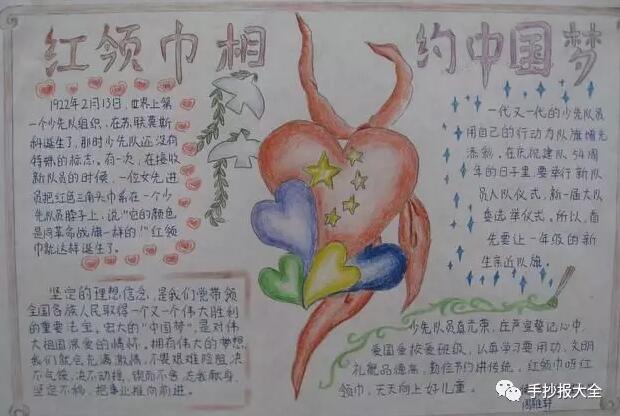 红领巾相约中国梦
1922年2月13日,世界上第
一个少先队组织,在苏联莫斯
科诞生了,那时少先队还没有
特殊的标志。有一次,在接收
新队员的时候,一位女先进
员把红色三角头巾系在一个少
先队员脖子上,说"它的颜色
是同革命战旗一样的!"红领
巾就这样诞生了。
坚定的理想信念,是我们党带领
全国各族人民取得一个又一个伟大胜利
的重要法宝。宏大的"中国梦",是对伟
大祖国深爱的情怀。拥有伟大的梦想,
我们就会充满激情,不畏艰难险阻,决
不气馁,决不动摇,锲而不舍,忘我献身,
坚定不移,把事业推向前进。
一代又一代的少先队员
用自己的行动为队旗增光
添彩。在庆祝建队54周
年的日子里,要举行新队
员入队仪式,新一届大队
委选举仪式。所以,首
先要让一年级的新
生亲近队旗。
少先队员真光荣,庄严宣誓记心中,
爱国爱校爱班级,认真学习要用功,文明
礼貌品德高,勤俭节约讲传统,红领巾呀红
领巾,天天向上好儿童。
手抄报大全